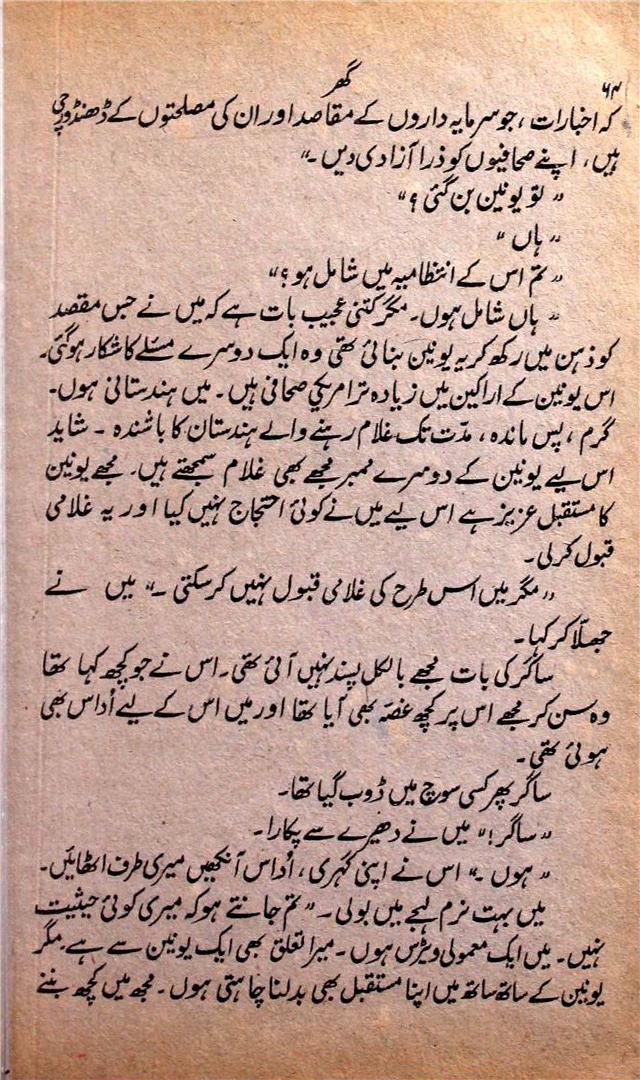 ۶۴
گھر
کہ اخبارات، جو سرمایہ داروں کے مقاصد اور ان کی مصلحتوں کے ڈھنڈورچی
ہیں، اپنے صحافیوں کو ذرا آزادی دیں۔"
"تو یونین بن گئی ؟"
"ہاں"
"تم اس کے انتظامیہ میں شامل ہو؟"
"ہاں شامل ہوں۔ مگر کتنی عجیب بات ہے کہ میں نے جس مقصد
کو ذہن میں رکھ کر یہ یونین بنائی تھی وہ ایک دوسرے مسئلے کا شکار ہوگئی۔
اس یونین کے اراکین میں زیادہ تر امریکی صحافی ہیں۔ میں ہندستانی ہوں۔
گرم، پس ماندہ، مدّت تک غلام رہنے والے ہندستان کا باشندہ ۔ شاید
اس لیے یونین کے دوسرے ممبر مجھے بھی غلام سمجھتے ہیں۔ مجھے یونین
کا مستقبل عزیز ہے اس لیے میں نے کوئی احتجاج نہیں کیا اور یہ غلامی
قبول کرلی۔
"مگر میں اس طرح کی غلامی قبول نہیں کرسکتی۔" میں نے
جھلّا کر کہا۔
ساگر کی بات مجھے بالکل پسند نہیں آئی تھی۔ اس نے جو کچھ کہا تھا
وہ سن کر مجھے اس پر کچھ غصّہ بھی آیا تھا اور میں اس کے لیے اُداس بھی
ہوئی تھی۔
ساگر پھر کسی سوچ میں ڈوب گیا تھا۔
"ساگر!" میں نے دھیرے سے پکارا۔
"ہوں۔" اس نے اپنی گہری، اُداس آنکھیں میری طرف اٹھائیں۔
میں بہت نرم لہجے میں بولی۔ "تم جانتے ہو کہ میری کوئی حیثیت
نہیں۔ میں ایک معمولی ویٹرس ہوں۔ میرا تعلق بھی ایک یونین سے ہے۔ مگر
یونین کے ساتھ ساتھ میں اپنا مستقبل بھی بدلنا چاہتی ہوں۔ مجھ میں کچھ بننے